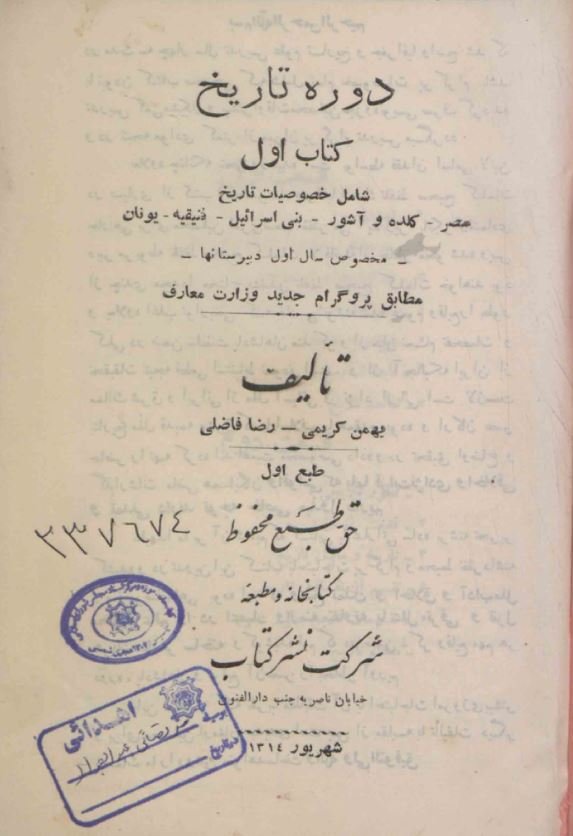 دوره تاریخ
کتاب اول
شامل خصوصیات تاریخ
مصر - کلده و آشور - بنی اسرائیل - فنیقیه - یونان
مخصوص سال اول دبیرستانها -
مطابق پروگرام جدید وزارت معارف
تألیف
بهمن کریمی - رضا فاضلی
طبع اول
حق طبع محفوظ
۳۳۷۶۷۴
کتابخانه و مطبعه
شرکت نشر کتاب
خیابان ناصریه جنب دارالفنون
شهریور ۱۳۱۴
اهدائی